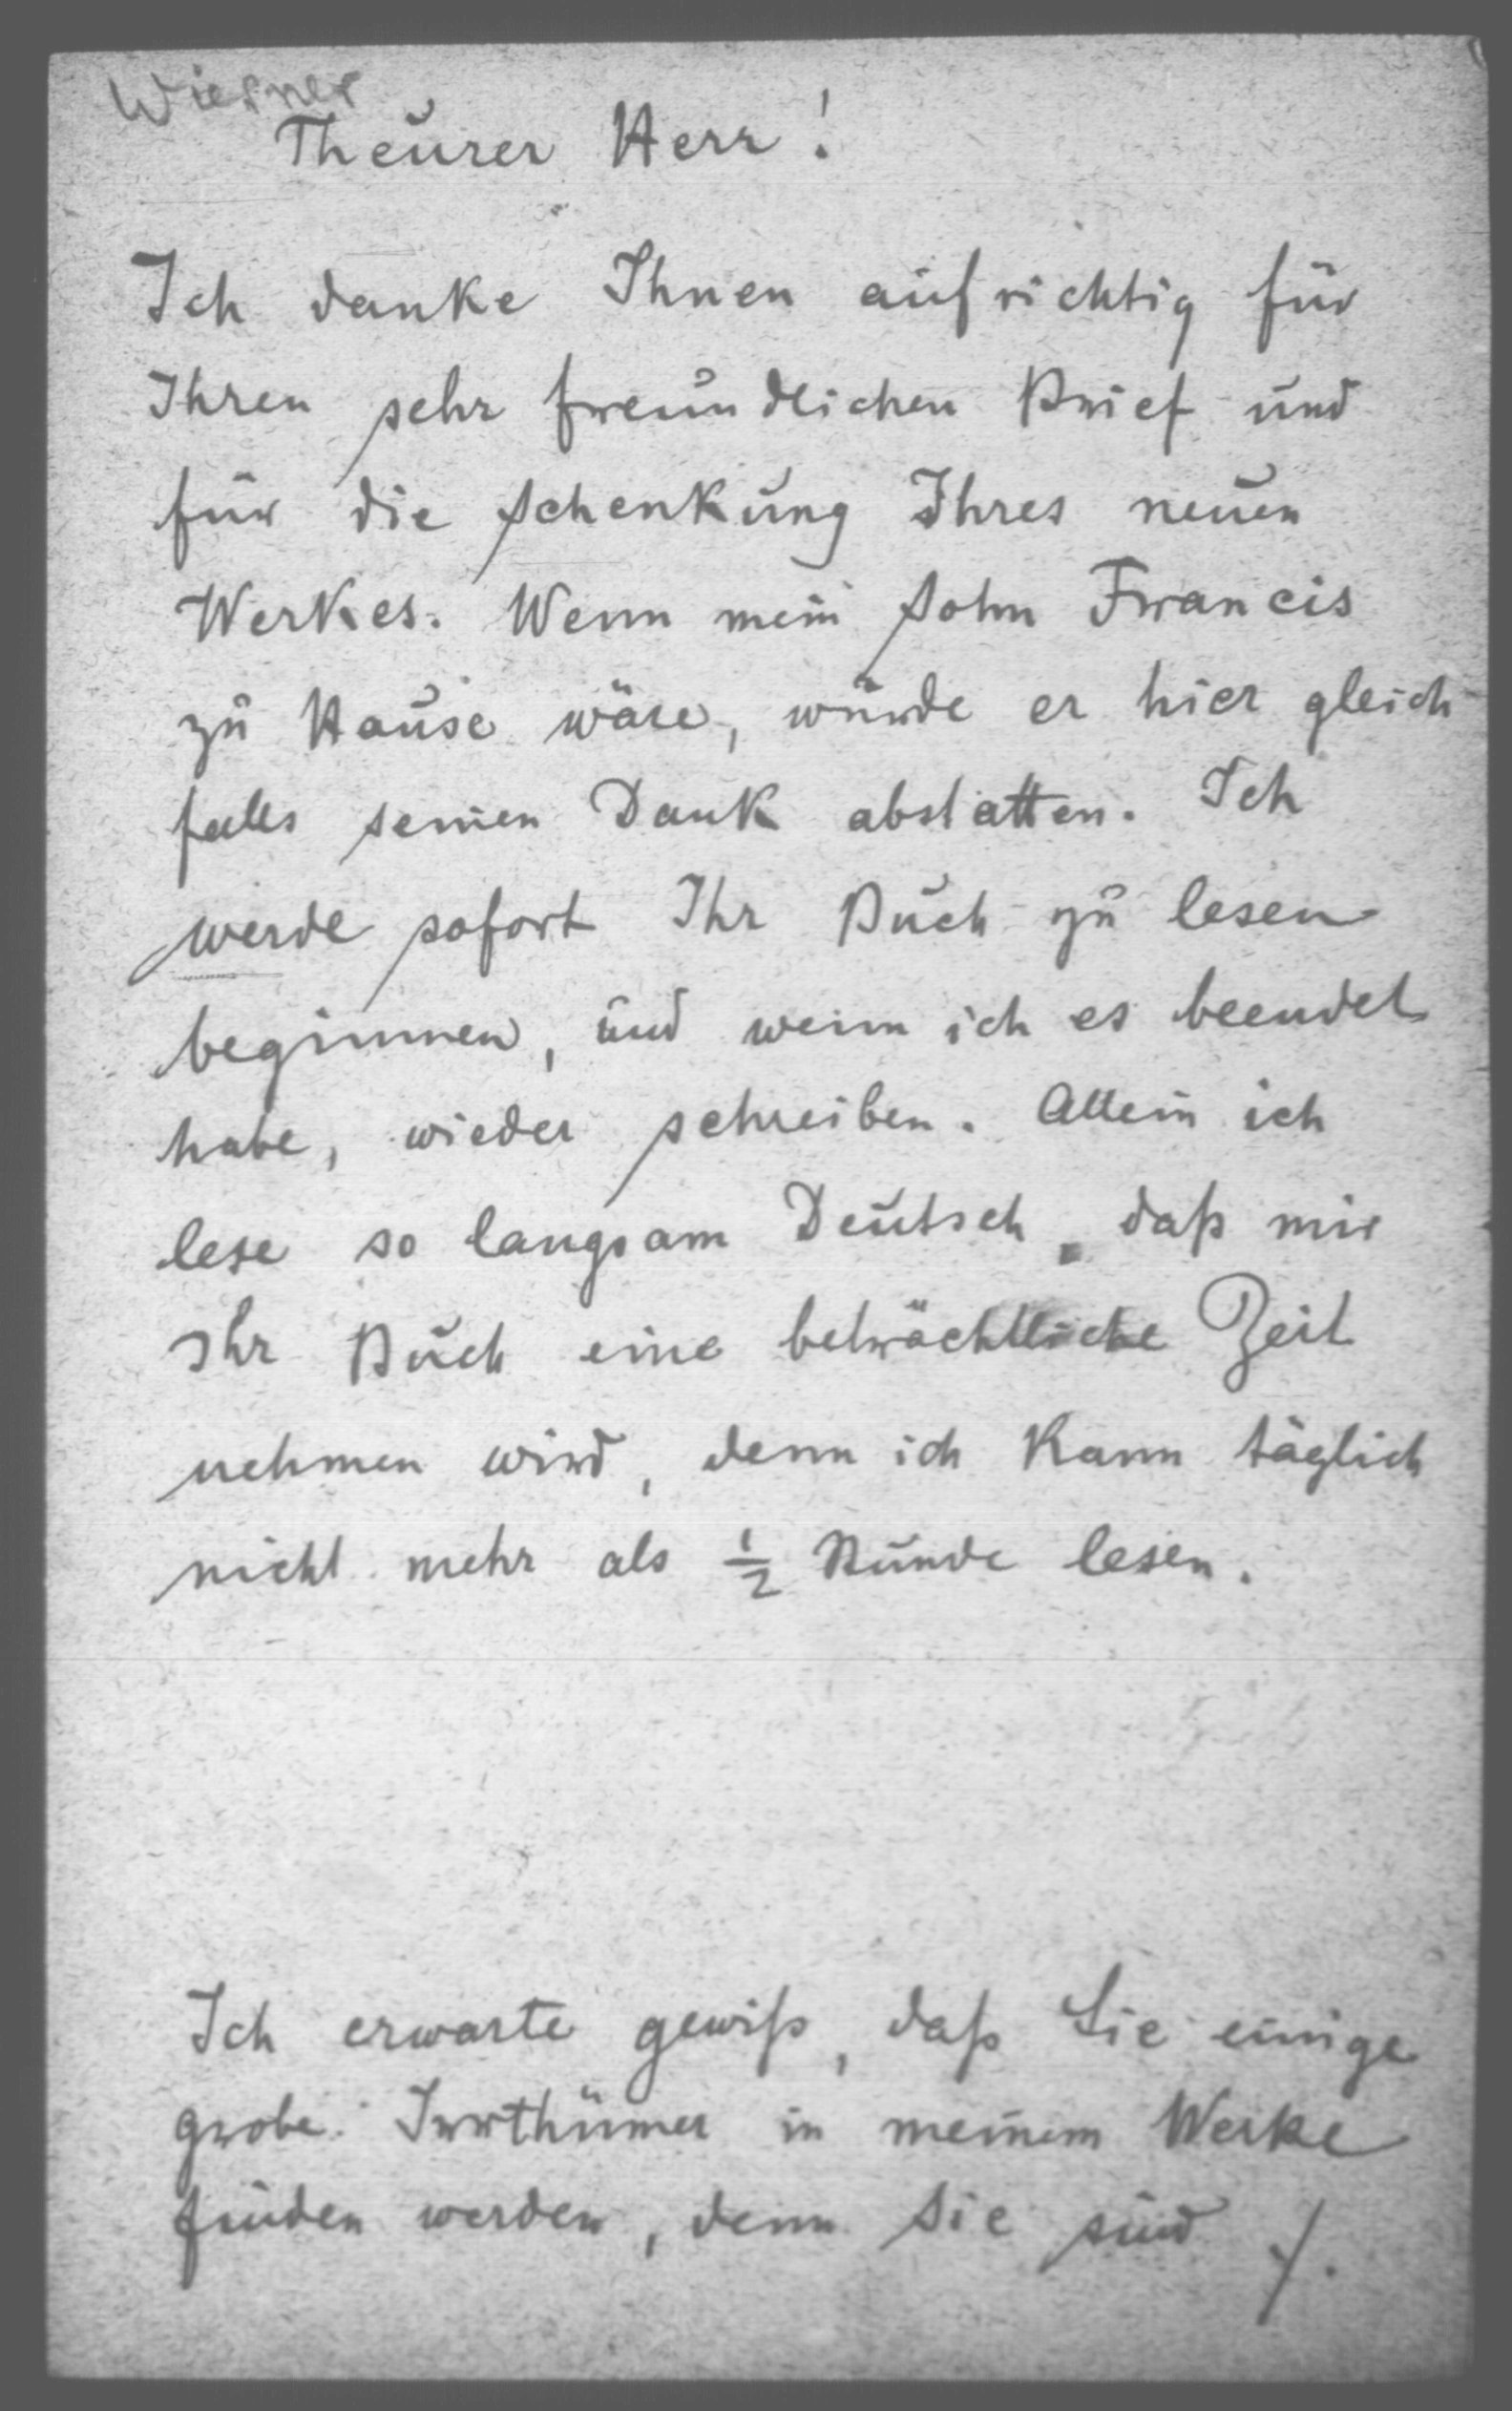 Wiesner
Theurer Herr!
Ich danke Ihnen aufrichtig für
Ihren sehr freundlichen Brief und
für die Schenkung Ihres neuen
Werkes. Wenn mein Sohn Francis
zu Hause wäre, würde er hier gleich
falls seinen Dank abstatten. Ich
werde sofort Ihr Buch zu lesen
beginnen, und wenn ich es beendet
habe, wieder schreiben. Allein ich
lese so langsam Deutsch, daß mir
Ihr Buch eine beträchtliche Zeit
nehmen wird, denn ich kann täglich
nicht mehr als ½ Stunde lesen.
Ich erwarte gewiß, daß Sie einige
grobe Irrthümer in meinem Werke
finden werden, denn Sie sind /.